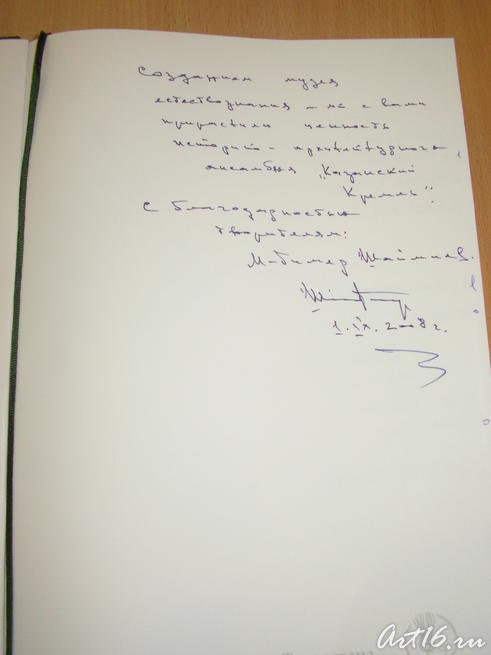 Созданием музея
естествознания – мы с вами
прирастили ценность
историко-архитектурного
ансамбля „Казанский
Кремль".
С благодарностью
творителям:
М-тимер Шаймиев.
1.IX.2008 г.
Art16.ru